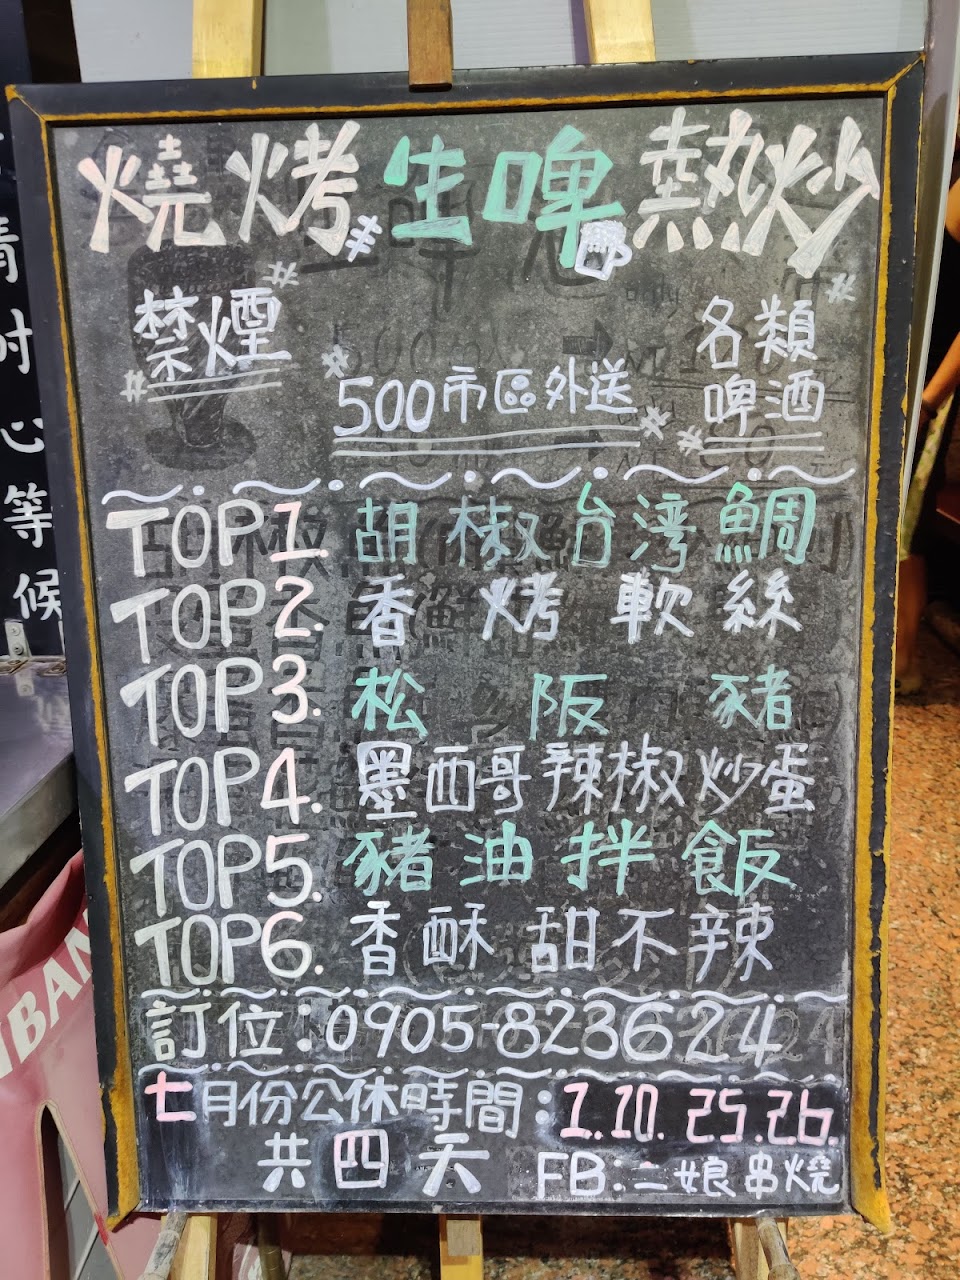 燒烤生啤熱炒
禁煙
各類
啤酒
500市區外送
TOP1 胡椒台湾鯛
TOP2. 香烤軟絲
TOP3. 松阪豬
TOP4. 墨西哥辣椒炒蛋
TOP5. 豬油拌飯
TOP6. 香酥甜不辣
訂位:0905-823624
七月份公休時間:1.10.25.26.
共四天
FB:二娘串燒
時心等候